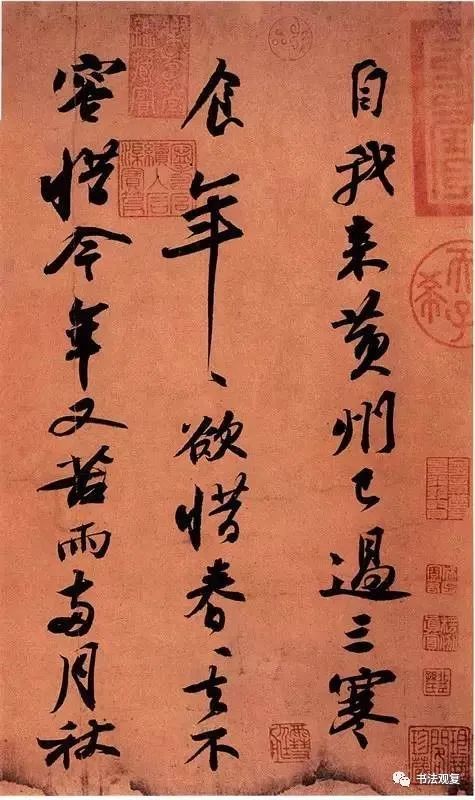 自我来黄州已過三寒
食年〻欲惜春〻去不
容惜今年又苦雨两月秋
天子
希
书法观复